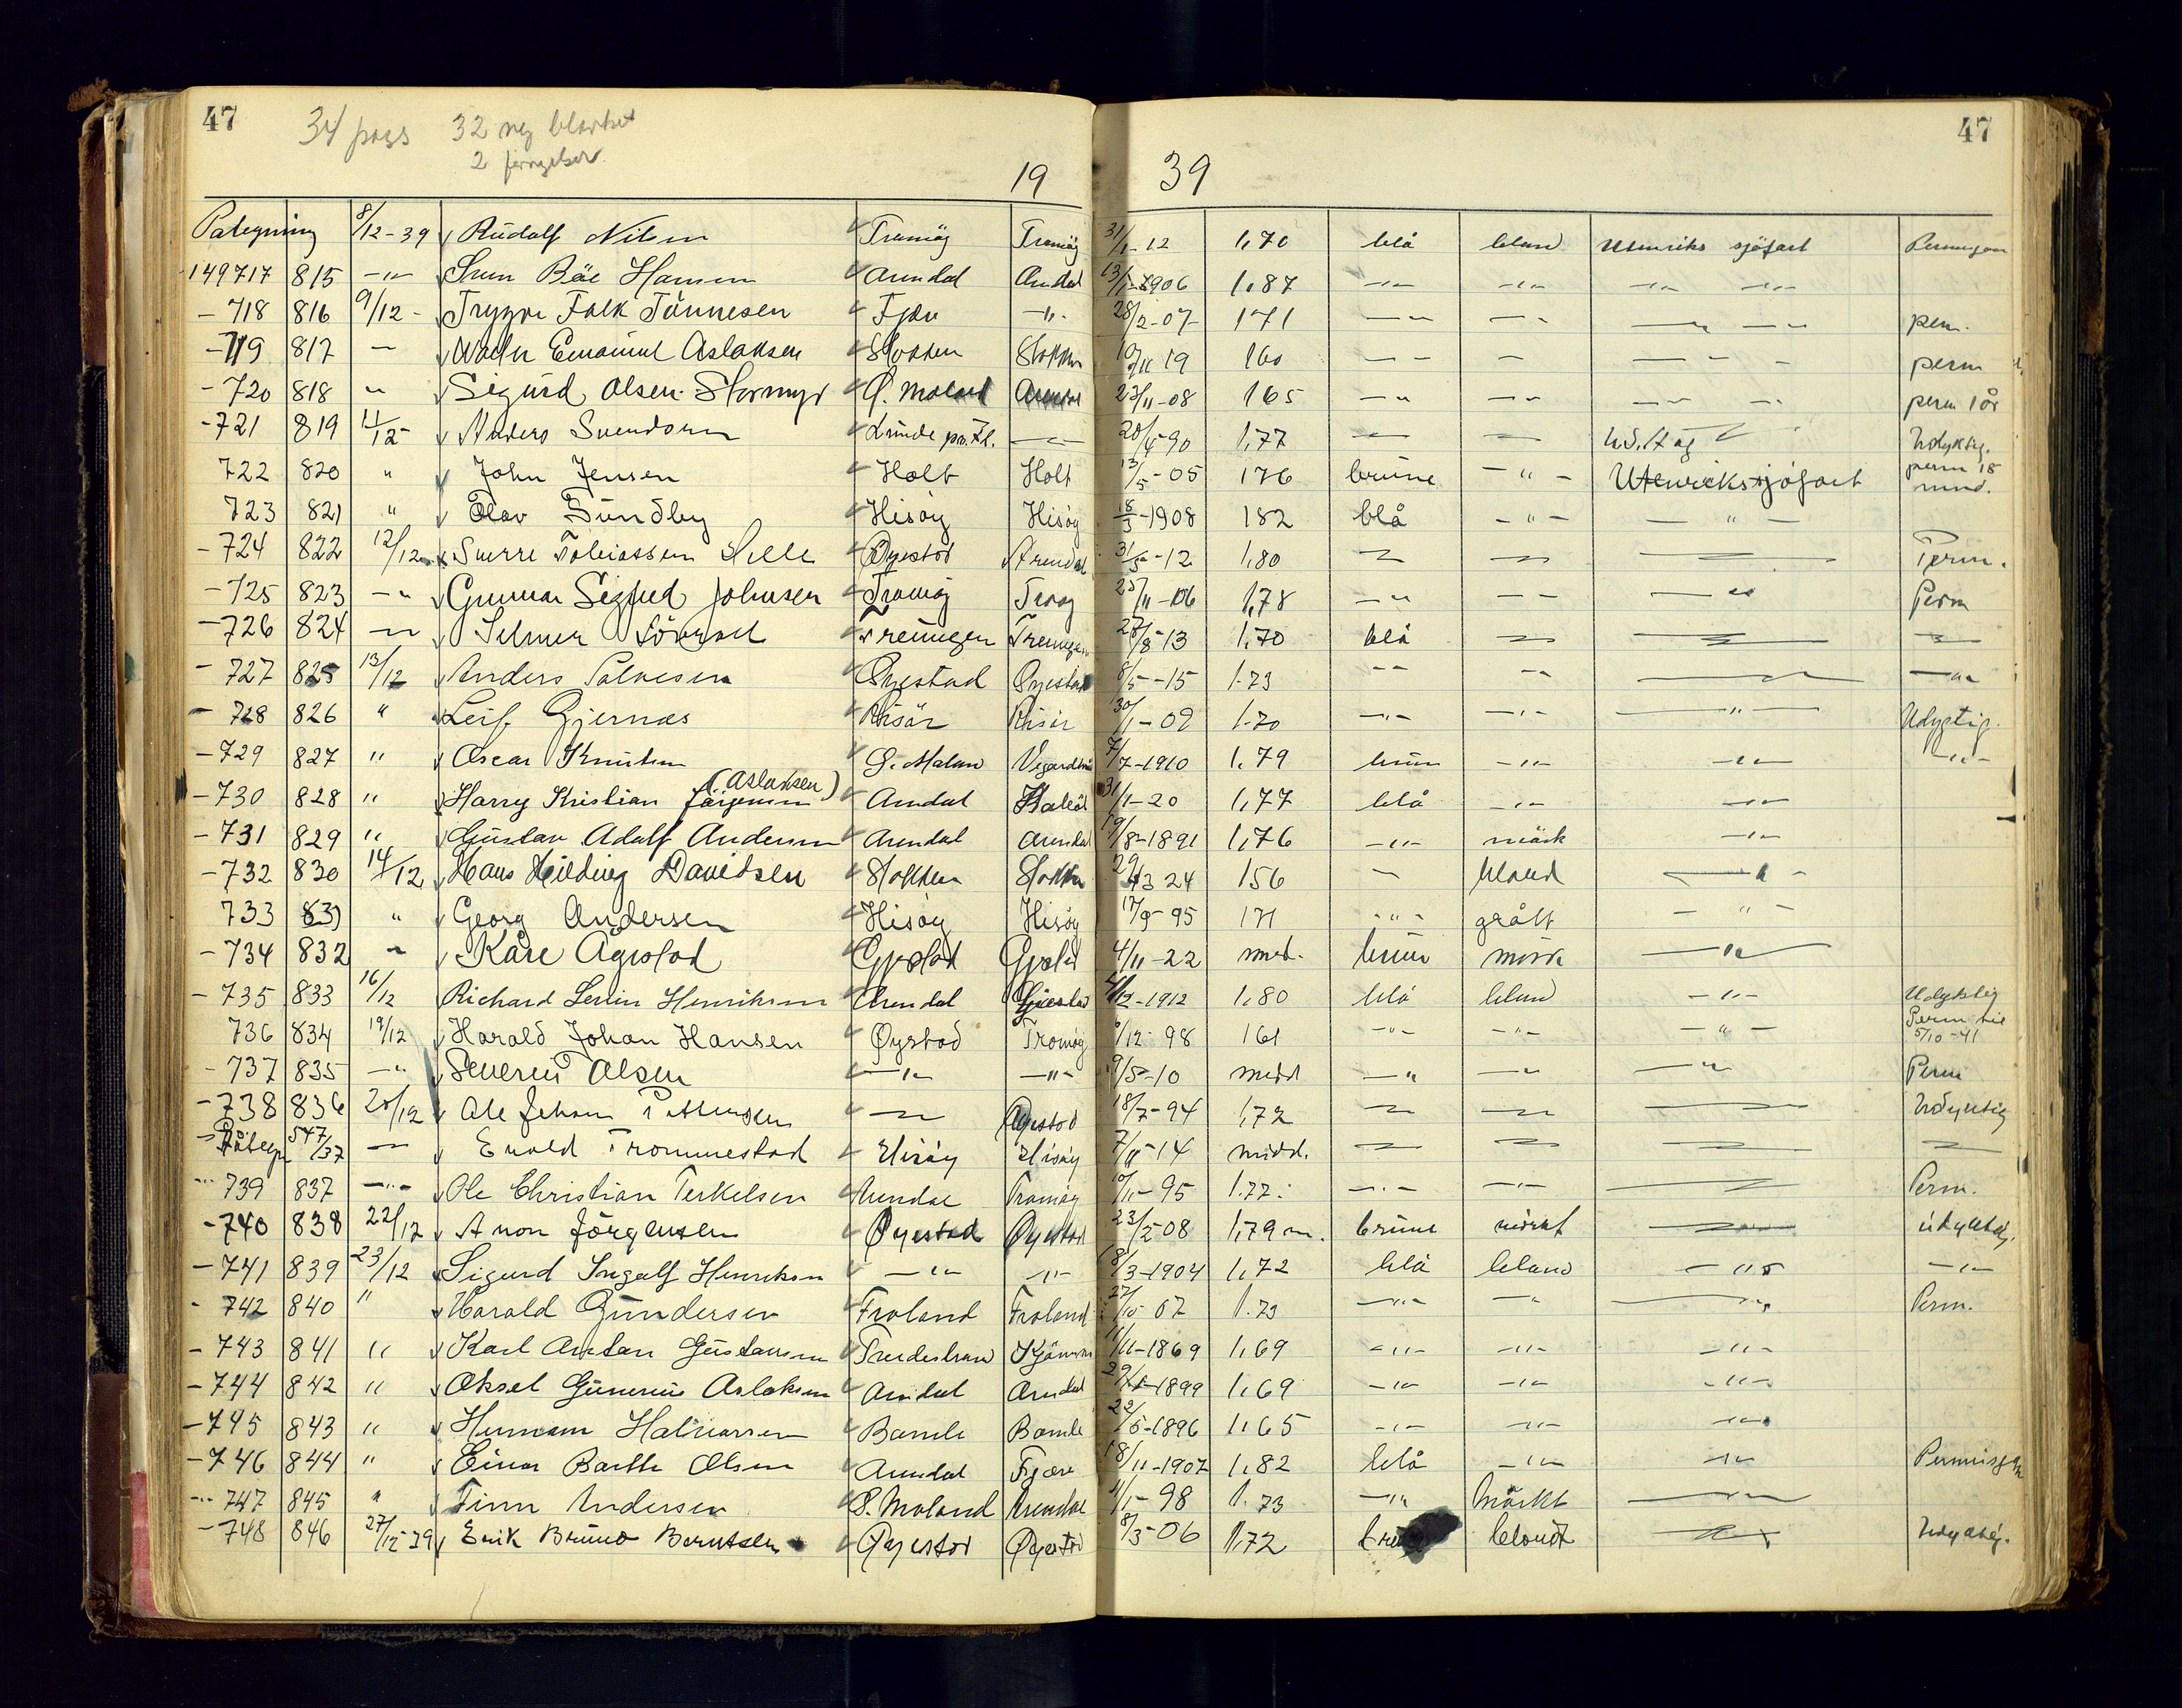 47
34 pass 32 ny blanket
2 fornyelser
19 39
47
Påtegning 8/12-39 Rudolf Nilsen Tromöy Tromöy 31/1-12 1,70 blå blond Utenriks sjöfart Permisjon
149717 815 -"- Hansen Arendal Arendal 13/1-1906 1.87 -"- -"- -"- -"-
-718 816 9/12- Trygve Falk Tönnesen Fjære -"- 28/2-07 171 -"- -"- -"- -"- perm.
-719 817 - Emanuel Aslaksen Stokken Stokken 10/11 19 160 -"- - - " - perm
-720 818 -"- Sigurd Olsen Stormyr Ö. Moland Arendal 23/11-08 165 -"- -"- -"- - perm 1 år
-721 819 11/12- Anders Svendsen Lunde -"- 20/4-90 1,77 -"- -"- Udyktig.
722 820 " John Jensen Holt Holt 13/5-05 176 brune -"- Utenrikssjöfart perm 18 mnd.
723 821 " Olav Sundby Hisöy Hisöy 18/3-1908 182 blå -"- -"-
-724 822 12/12 Sverre Tobiassen Helle Öyestad Arendal 31/5-12 1,80 -"- -"- -"- Perm.
-725 823 -"- Gunnar Sigfred Johnsen Tromöy Tromöy 25/11-06 1,78 -"- -"- -"- Perm
-726 824 -"- Selmer Treungen Treungen 27/8-13 1,70 blå -"- -"- -"-
-727 825 13/12 Anders Salvesen Öyestad Öyestad 8/5-15 1.73 -"- -"- -"- -"-
-728 826 " Leif Gjernes Risör Risör 30/1-09 1.70 -"- -"- -"- Udyktig.
-729 827 " Oscar Knutsen Ö. Moland 7/7-1910 1.79 brun -"- -"- -"-
(Aslaksen)
-730 828 " Harry Kristian Jörgensen Arendal 31/1-20 1,77 blå -"- -"-
-731 829 " Gustav Adolf Andersen Arendal Arendal 19/8-1891 1,76 -"- mörk -"-
-732 830 14/12 Hans Hilding Davidsen Stokken Stokken 29/3 24 156 - blond -"-
733 831 " Georg Andersen Hisöy Hisöy 17/9-95 171 -"- grått -"-
-734 832 -"- Kåre Ågestad Öyestad Öyestad 4/11-22 med. brun mörk -"-
-735 833 16/12 Richard Henriksen Arendal Öyestad /12-1912 1,80 blå blond -"- Udyktig
736 834 19/12 Harald Johan Hansen Öyestad Tromöy /12-98 161 -"- -"- -"- Perm til 5/10-41
-737 835 -"- Severin Olsen -"- -"- 9/5-10 midd -"- -"- -"- Perm
-738 836 20/12 Ole Johan Pettersen -"- Öyestad 18/7-94 1,72 -"- -"- -"- Udyktig
-Påtegn 547/37 -"- Evald Trommestad Hisöy Hisöy 7/11-14 midd. -"- -"- -"- -"-
-739 837 -"- Ole Christian Terkelsen Arendal Tromöy 10/11-95 1.77 -"- -"- -"- Perm.
-740 838 22/12 Aron Jörgensen Öyestad Öyestad 23/5 08 1,79 m. brune mörkt -"- udyktig.
-741 839 23/12 Sigurd Ingolf Henriksen -"- -"- 18/3-1904 1,72 blå blond -"- -"-
-742 840 " Harald Gundersen Froland Froland 27/10-07 1.73 -"- -"- -"- Perm.
-743 841 " Karl Anton Gustavsen Tvedestrand 11/11-1869 1,69 -"- -"- -"-
-744 842 " Aksel Gunerius Aslaksen Arendal Arendal 29/ -1899 1,69 -"- -"- -"-
-745 843 " Herman Halvorsen Bamle Bamle 22/5-1896 1,65 -"- -"- -"-
-746 844 " Einar Barth Olsen Arendal Fjære 18/11-1907 1,82 blå -"- -"- Permisjon
-747 845 " Finn Andersen Ö. Moland Arendal 11/1-98 1.73 -"- Mörkt -"-
-748 846 27/12-39 Erik Bruno Berntsen Öyestad Öyestad 8/3-06 1,72 blondt -"- Udyktig.